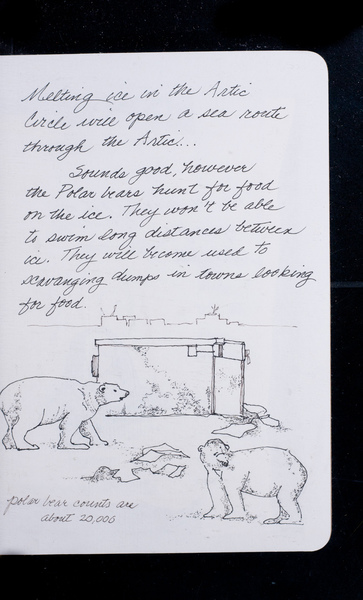 Melting ice in the Artic
Circle will open a sea route
through the Artic...
Sounds good, however
the Polar bears hunt for food
on the ice. They won't be able
to swim long distances between
ice. They will become used to
scavanging dumps in towns looking
for food.
polar bear counts are
about 20,000